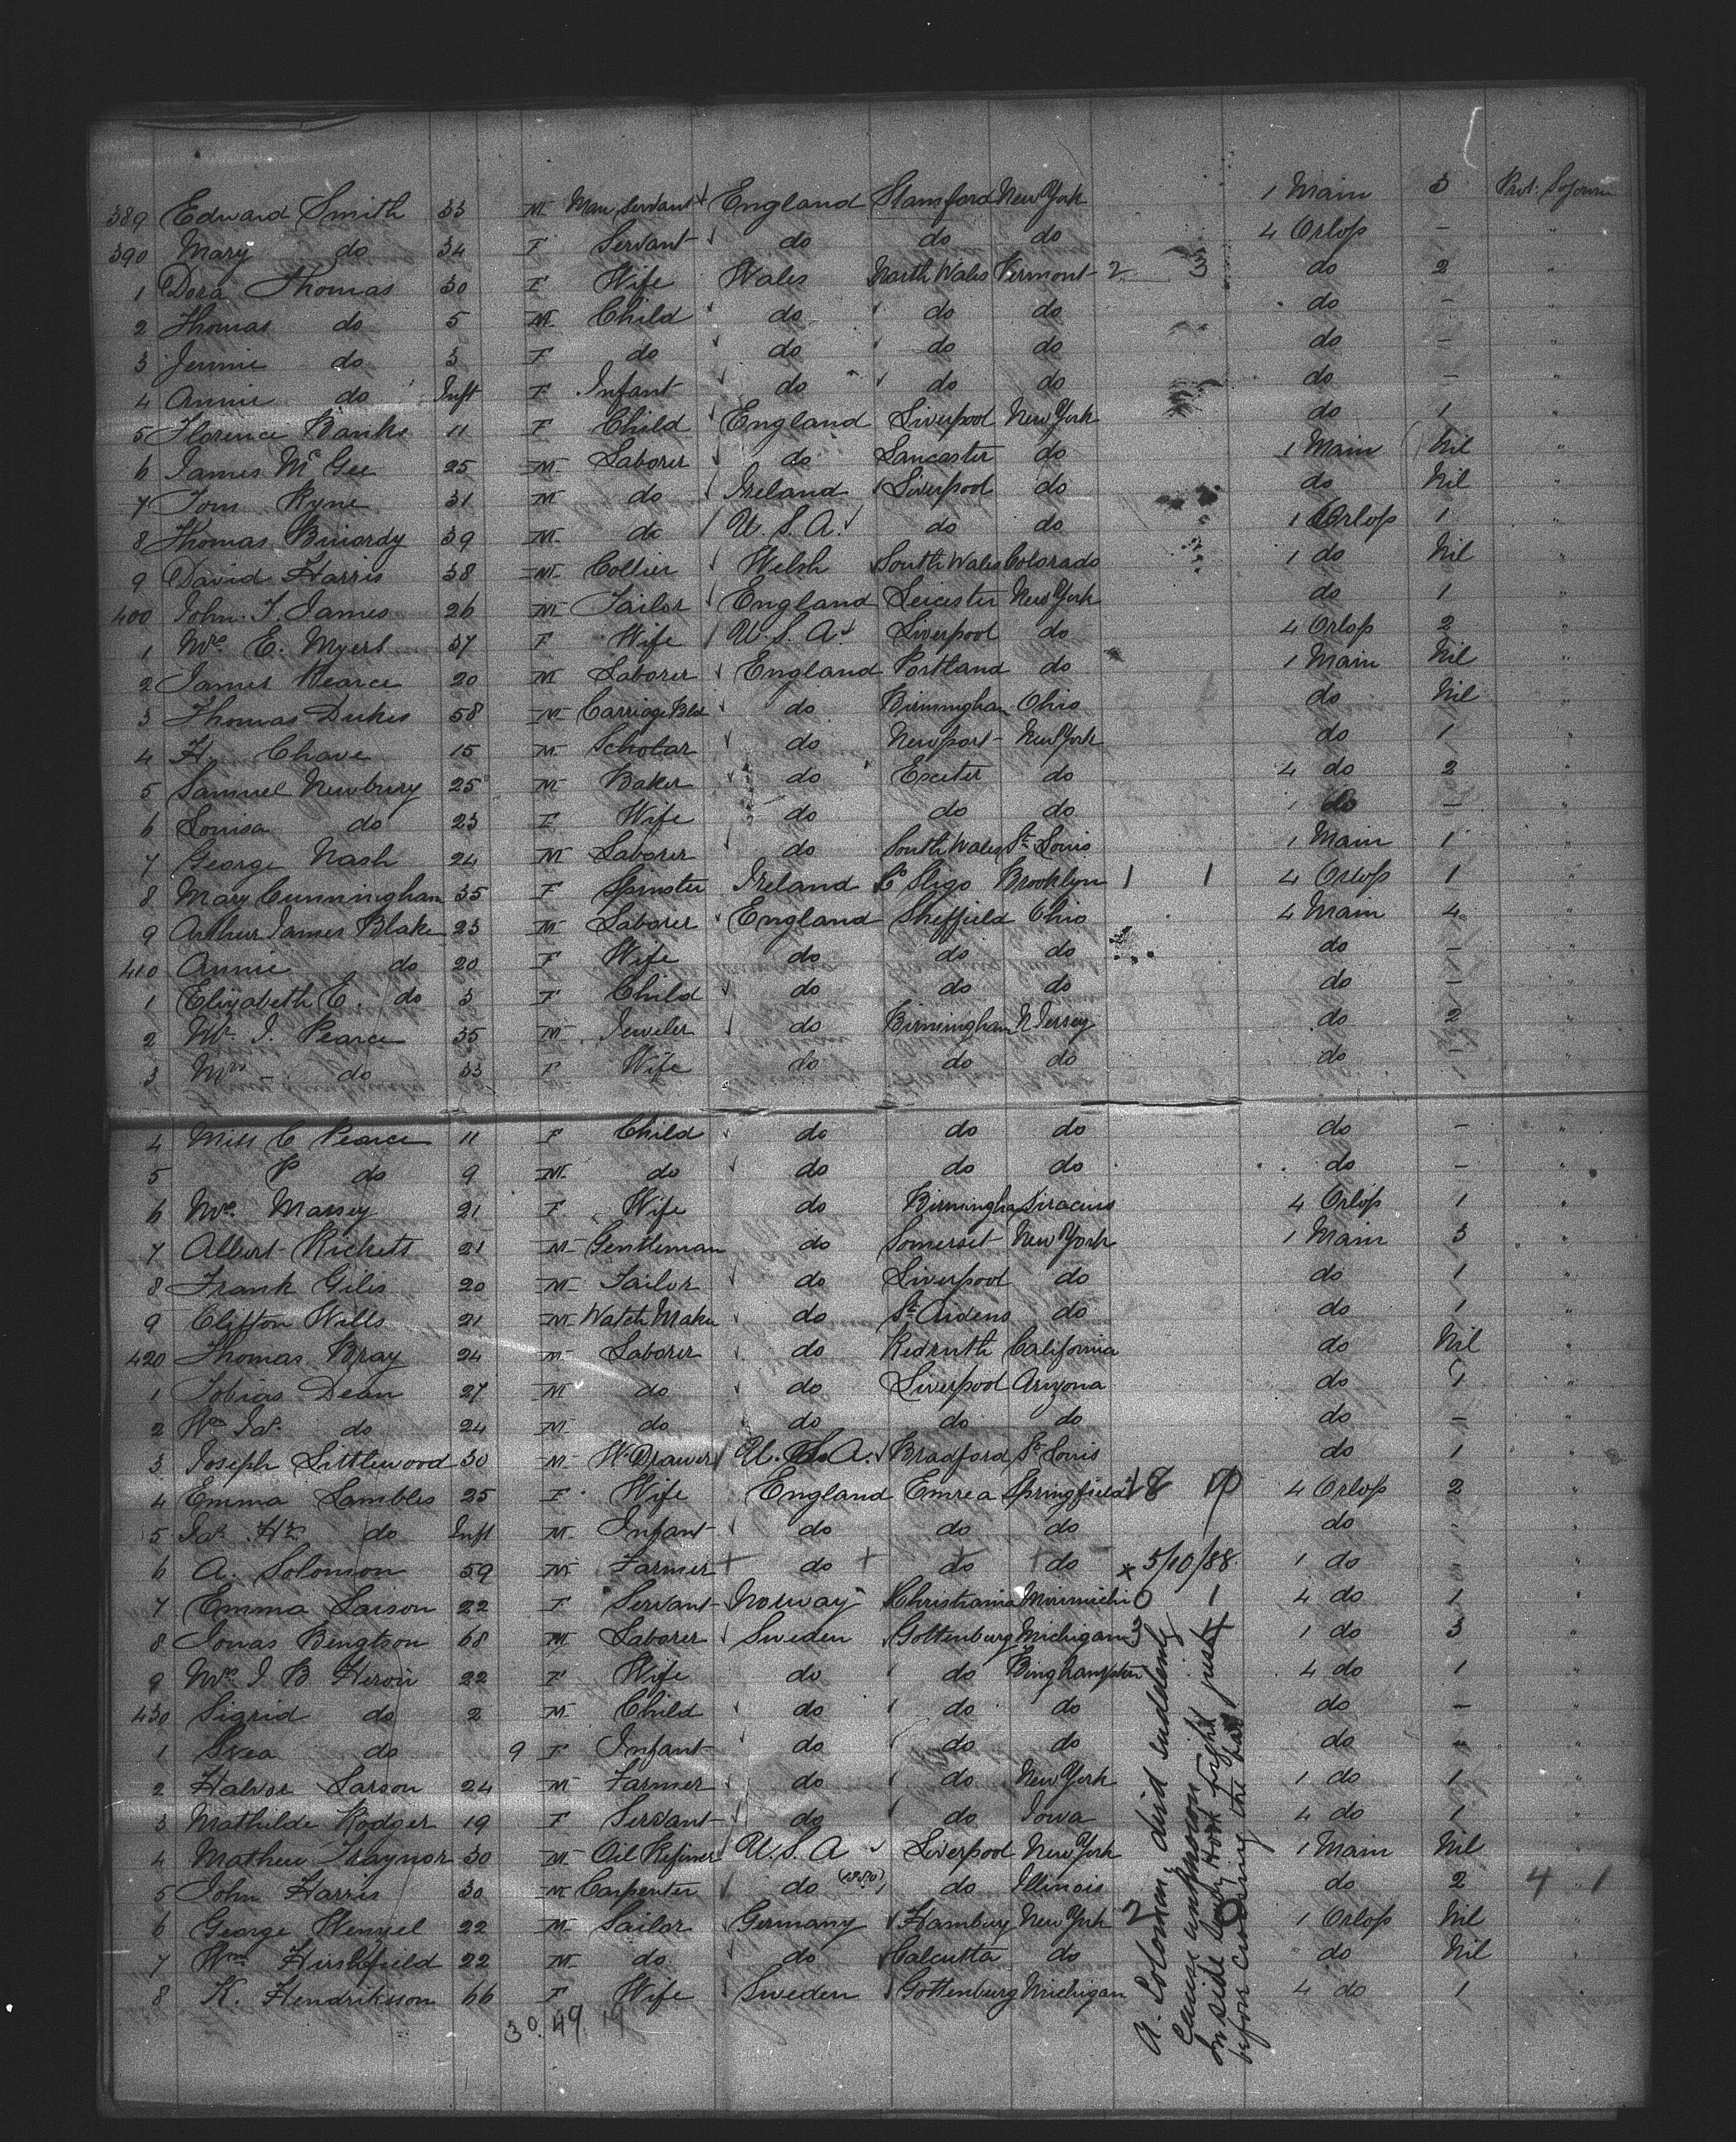 389 Edward Smith 33 M Man Servant England Stamford New York 1 Main 3 Prot. Sojourn
390 Mary do 34 F Servant do do do 4 Orlop - "
1 Dora Thomas 30 F Wife Wales North Wales Vermont 2 3 do 2 "
2 Thomas do 5 M Child do do do do - "
3 Jennie do 3 F do do do do do - "
4 Annie do Inft F Infant do do do do - "
5 Florence Banks 11 F Child England Liverpool New York do 1 "
6 James McGee 25 M Laborer do Lancaster do 1 Main Nil "
7 Tom Ryne 31 M do Ireland Liverpool do do Nil "
8 Thomas 39 M do U.S.A. do do 1 Orlop 1 "
9 David Harris 38 M Collier Welsh South Wales Colorado 1 do Nil "
400 John T. James 26 M Tailor England Leicester New York do 1 "
1 Mrs E. Myers 37 F Wife U.S.A. Liverpool do 4 Orlop 2 "
2 James Pearce 20 M Laborer England Portland do 1 Main Nil "
3 Thomas Dukes 58 M Carriage Bld do Birmingham Ohio do Nil "
4 H. Chave 15 M Scholar do Newport New York do 1 "
5 Samuel Newbury 25 M Baker do Exeter do 4 do 2 "
6 Louisa do 23 F Wife do do do do - "
7 George Nash 24 M Laborer do South Wales St Louis 1 Main 1 "
8 Mary Cunningham 35 F Spinster Ireland Co Sligo Brooklyn 1 1 4 Orlop 1 "
9 Arthur James Blake 23 M Laborer England Sheffield Ohio 4 Main 4 "
410 Annie do 20 F Wife do do do do - "
1 Elizabeth E. do 3 F Child do do do do - "
2 Mr J. Pearce 35 M Jeweler do Birmingham N Jersey do 2 "
3 Mrs - do 33 F Wife do do do do - "
4 Miss C Pearce 11 F Child do do do do - "
5 P do 9 M do do do do do - "
6 Mrs Massey 21 F Wife do Birmingha Siracuis 4 Orlop 1 "
7 Albert Ricketts 21 M Gentleman do Somerset New York 1 Main 3 "
8 Frank Giles 20 M Tailor do Liverpool do do 1 "
9 Clifton Wills 21 M Watch Maker do St do do 1 "
420 Thomas Bray 24 M Laborer do Redruth California do Nil "
1 Tobias Dean 27 M do do Liverpool Arizona do 1 "
2 Wm Jas. do 24 M do do do do do - "
3 Joseph Littlewood 30 M W. Drawer U.S.A. Bradford St Louis do 1 "
4 Emma Lambles 25 F Wife England Emrea Springfield 4 Orlop 2 "
5 Jas Hy do Inft M Infant do do do do - "
6 A. Solomon 59 M Farmer do do do x 5/10/88 1 do - "
7 Emma Larson 22 F Servant Norway Christiania 0 1 4 do 1 "
8 Jonas Bengtson 68 M Laborer Sweden Gottenburg Michigan 3 4 1 do 3 "
9 Mrs J. B Heron 22 F Wife do do Binghampton 4 do 1 "
430 Sigrid do 2 M Child do do do do - "
1 Svea do 9 F Infant do do do do - "
2 Halvor Larson 24 M Farmer do do New York 1 do 1 "
3 Mathilde Rodger 19 F Servant do do Iowa 4 do 1 "
4 Mathew Traynor 30 M Oil Refiner U.S.A Liverpool New York 1 Main Nil "
5 John Harris 30 M Carpenter do do Illinois do 2 4 1
6 George Wenzel 22 M Sailor Germany Hamburg New York 2 0 1 Orlop Nil "
7 Wm Hirshfield 22 M do do Calcutta do do Nil "
8 K. Hendriksson 66 F Wife Sweden Gottenburg Michigan 4 do 1 "
30. 49. 19
A. Soloman died suddenly
Cause unknown
Inside Sandy Hook Light just
before crossing the bar